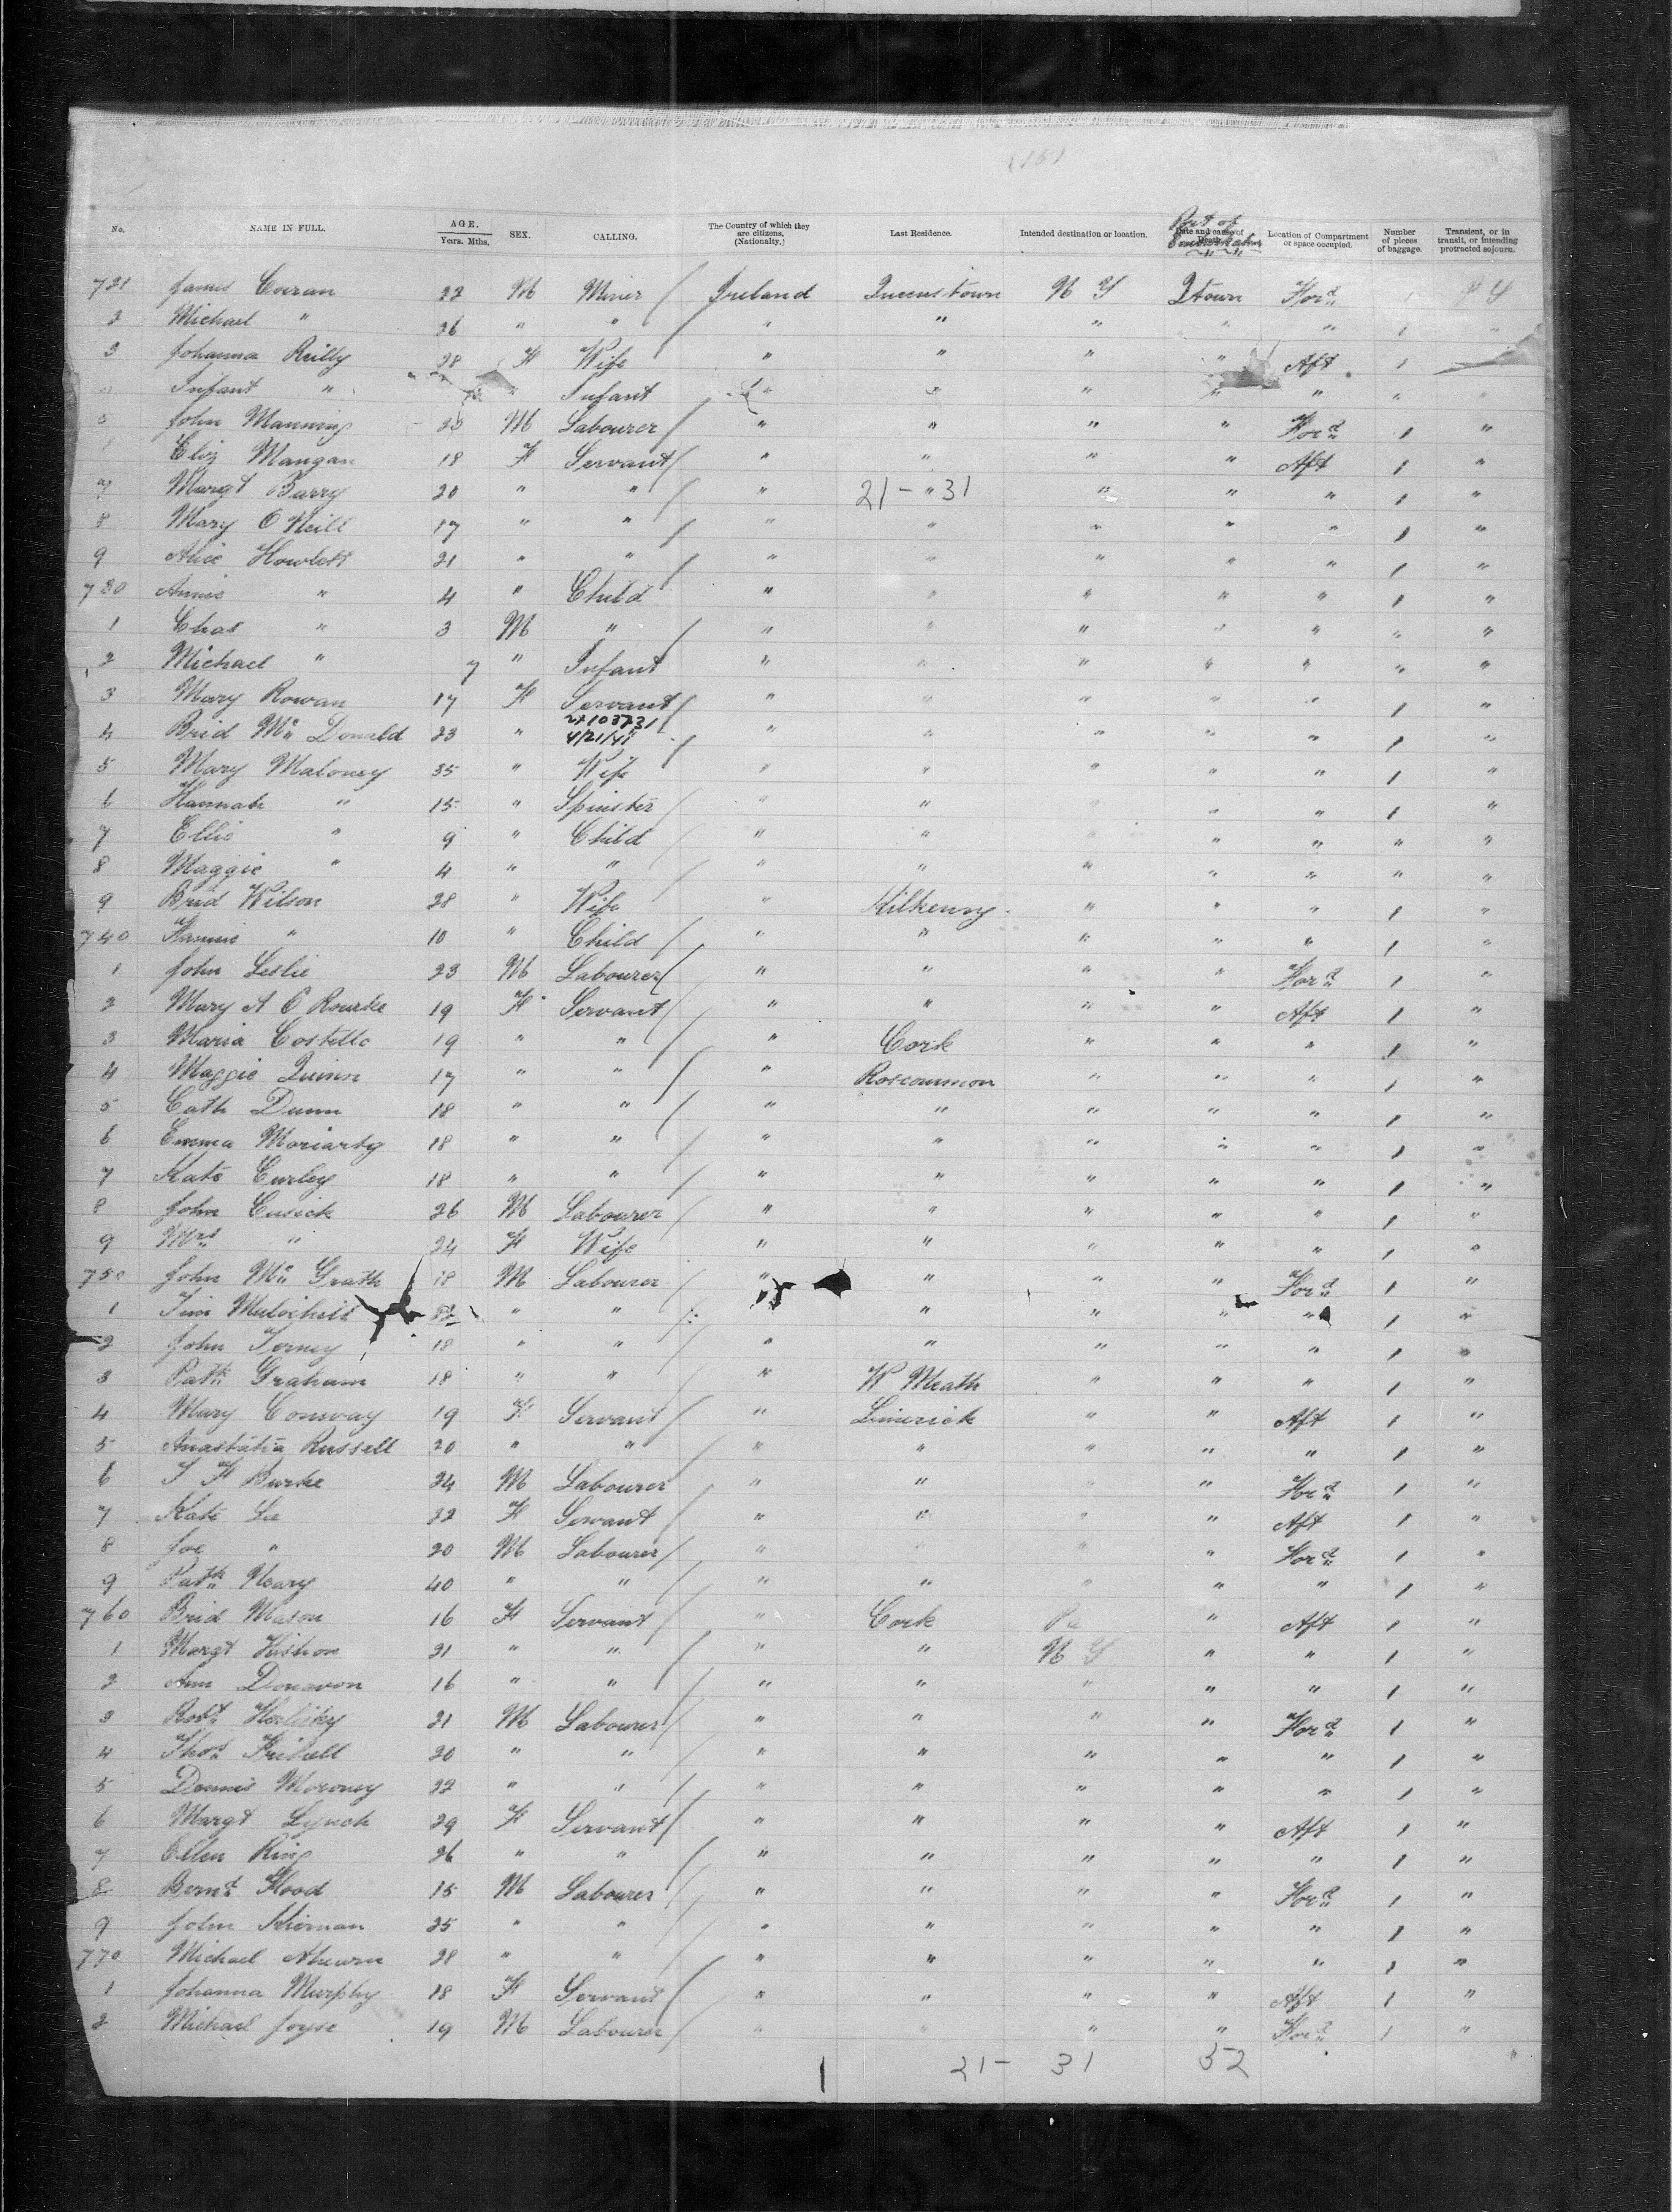 (151)
Port of Embarkation
No. NAME IN FULL. AGE. Years. Mths. SEX. CALLING. The Country of which they are citizens. (Nationality.) Last Residence. Intended destination or location. Date and cause of Death. Location of Compartment or space occupied. Number of pieces of baggage. Transient, or in transit, or intending protracted sojourn.
721 James Curran 22 M Miner Ireland Queenstown N Y Qtown Ford 1 N Y
2 Michael " 26 " " " " " " " 1 "
3 Johanna Reilly 28 F Wife " " " " Aft 1
Infant " " Infant " " " " " " "
5 John Manning M Labourer " " " " Ford 1 "
Eliz Mangan 18 F Servant " " " " Aft 1 "
7 Margt Barry 20 " " " 21 - " 31 " " " 1 "
8 Mary O Neill 17 " " " " " " " 1 "
9 Alice Howlett 21 " " " " " " " 1 "
730 Annie " 4 " Child " " " " " 1 "
1 Chas " 3 M " " " " " " " "
2 Michael " 7 " Infant " " " " " " "
3 Mary Rowan 17 F Servant " " " " " 1 "
4 Brid Mc Donald 23 " 2x103731 4/21/41 " " " " " 1 "
5 Mary Maloney 35 " Wife " " " " " 1 "
6 Hannah " 15 " Spinster " " " " " 1 "
7 Ellie " 9 " Child " " " " " " "
8 Maggie " 4 " " " " " " " " "
9 Brid Wilson 28 " Wife " Kilkenny " " " 1 "
740 Fannie " 10 " Child " " " " " 1 "
1 John Leslie 23 M Labourer " " " " Ford 1 "
2 Mary A O Rourke 19 F Servant " " " " Aft 1 "
3 Maria Costello 19 " " " Cork " " " 1 "
4 Maggie Quinn 17 " " " Roscommon " " " 1 "
5 Cath Dunn 18 " " " " " " " 1 "
6 Emma Moriarty 18 " " " " " " " 1 "
7 Kate Curley 18 " " " " " " " 1 "
8 John Cusick 26 M Labourer " " " " " 1 "
9 Mrs " 24 F Wife " " " " " 1 "
750 John Mc Grath 18 M Labourer " " " " Ford 1 "
1 Tim " " " " " " 1 "
2 John Torney 18 " " " " " " " 1 "
3 Patk Graham 18 " " " W Meath " " " 1 "
4 Mary Conway 19 F Servant " Limerick " " Aft 1 "
5 Anastatia Russell 20 " " " " " " " 1 "
6 T F Burke 24 M Labourer " " " " Ford 1 "
7 Kate Lee 22 F Servant " " " " Aft 1 "
8 Joe " 20 M Labourer " " " " Ford 1 "
9 Patk Neary 40 " " " " " " " 1 "
760 Brid Mason 16 F Servant " Cork Pa " Aft 1 "
1 Margt 21 " " " " N Y " " 1 "
2 Ann Donavon 16 " " " " " " " 1 "
3 Robt 21 M Labourer " " " " Ford 1 "
4 Thos 20 " " " " " " " 1 "
5 Dennis Moroney 22 " " " " " " " 1 "
6 Margt Lynch 29 F Servant " " " " Aft 1 "
7 Ellen Ring 26 " " " " " " " 1 "
8 Bernd Flood 15 M Labourer " " " " Ford 1 "
9 John Kiernan 25 " " " " " " " 1 "
770 Michael Ahearn 28 " " " " " " " 1 "
1 Johanna Murphy 18 F Servant " " " " Aft 1 "
2 Michael Joyce 19 M Labourer " " " " Ford 1 "
1 21 - 31 52